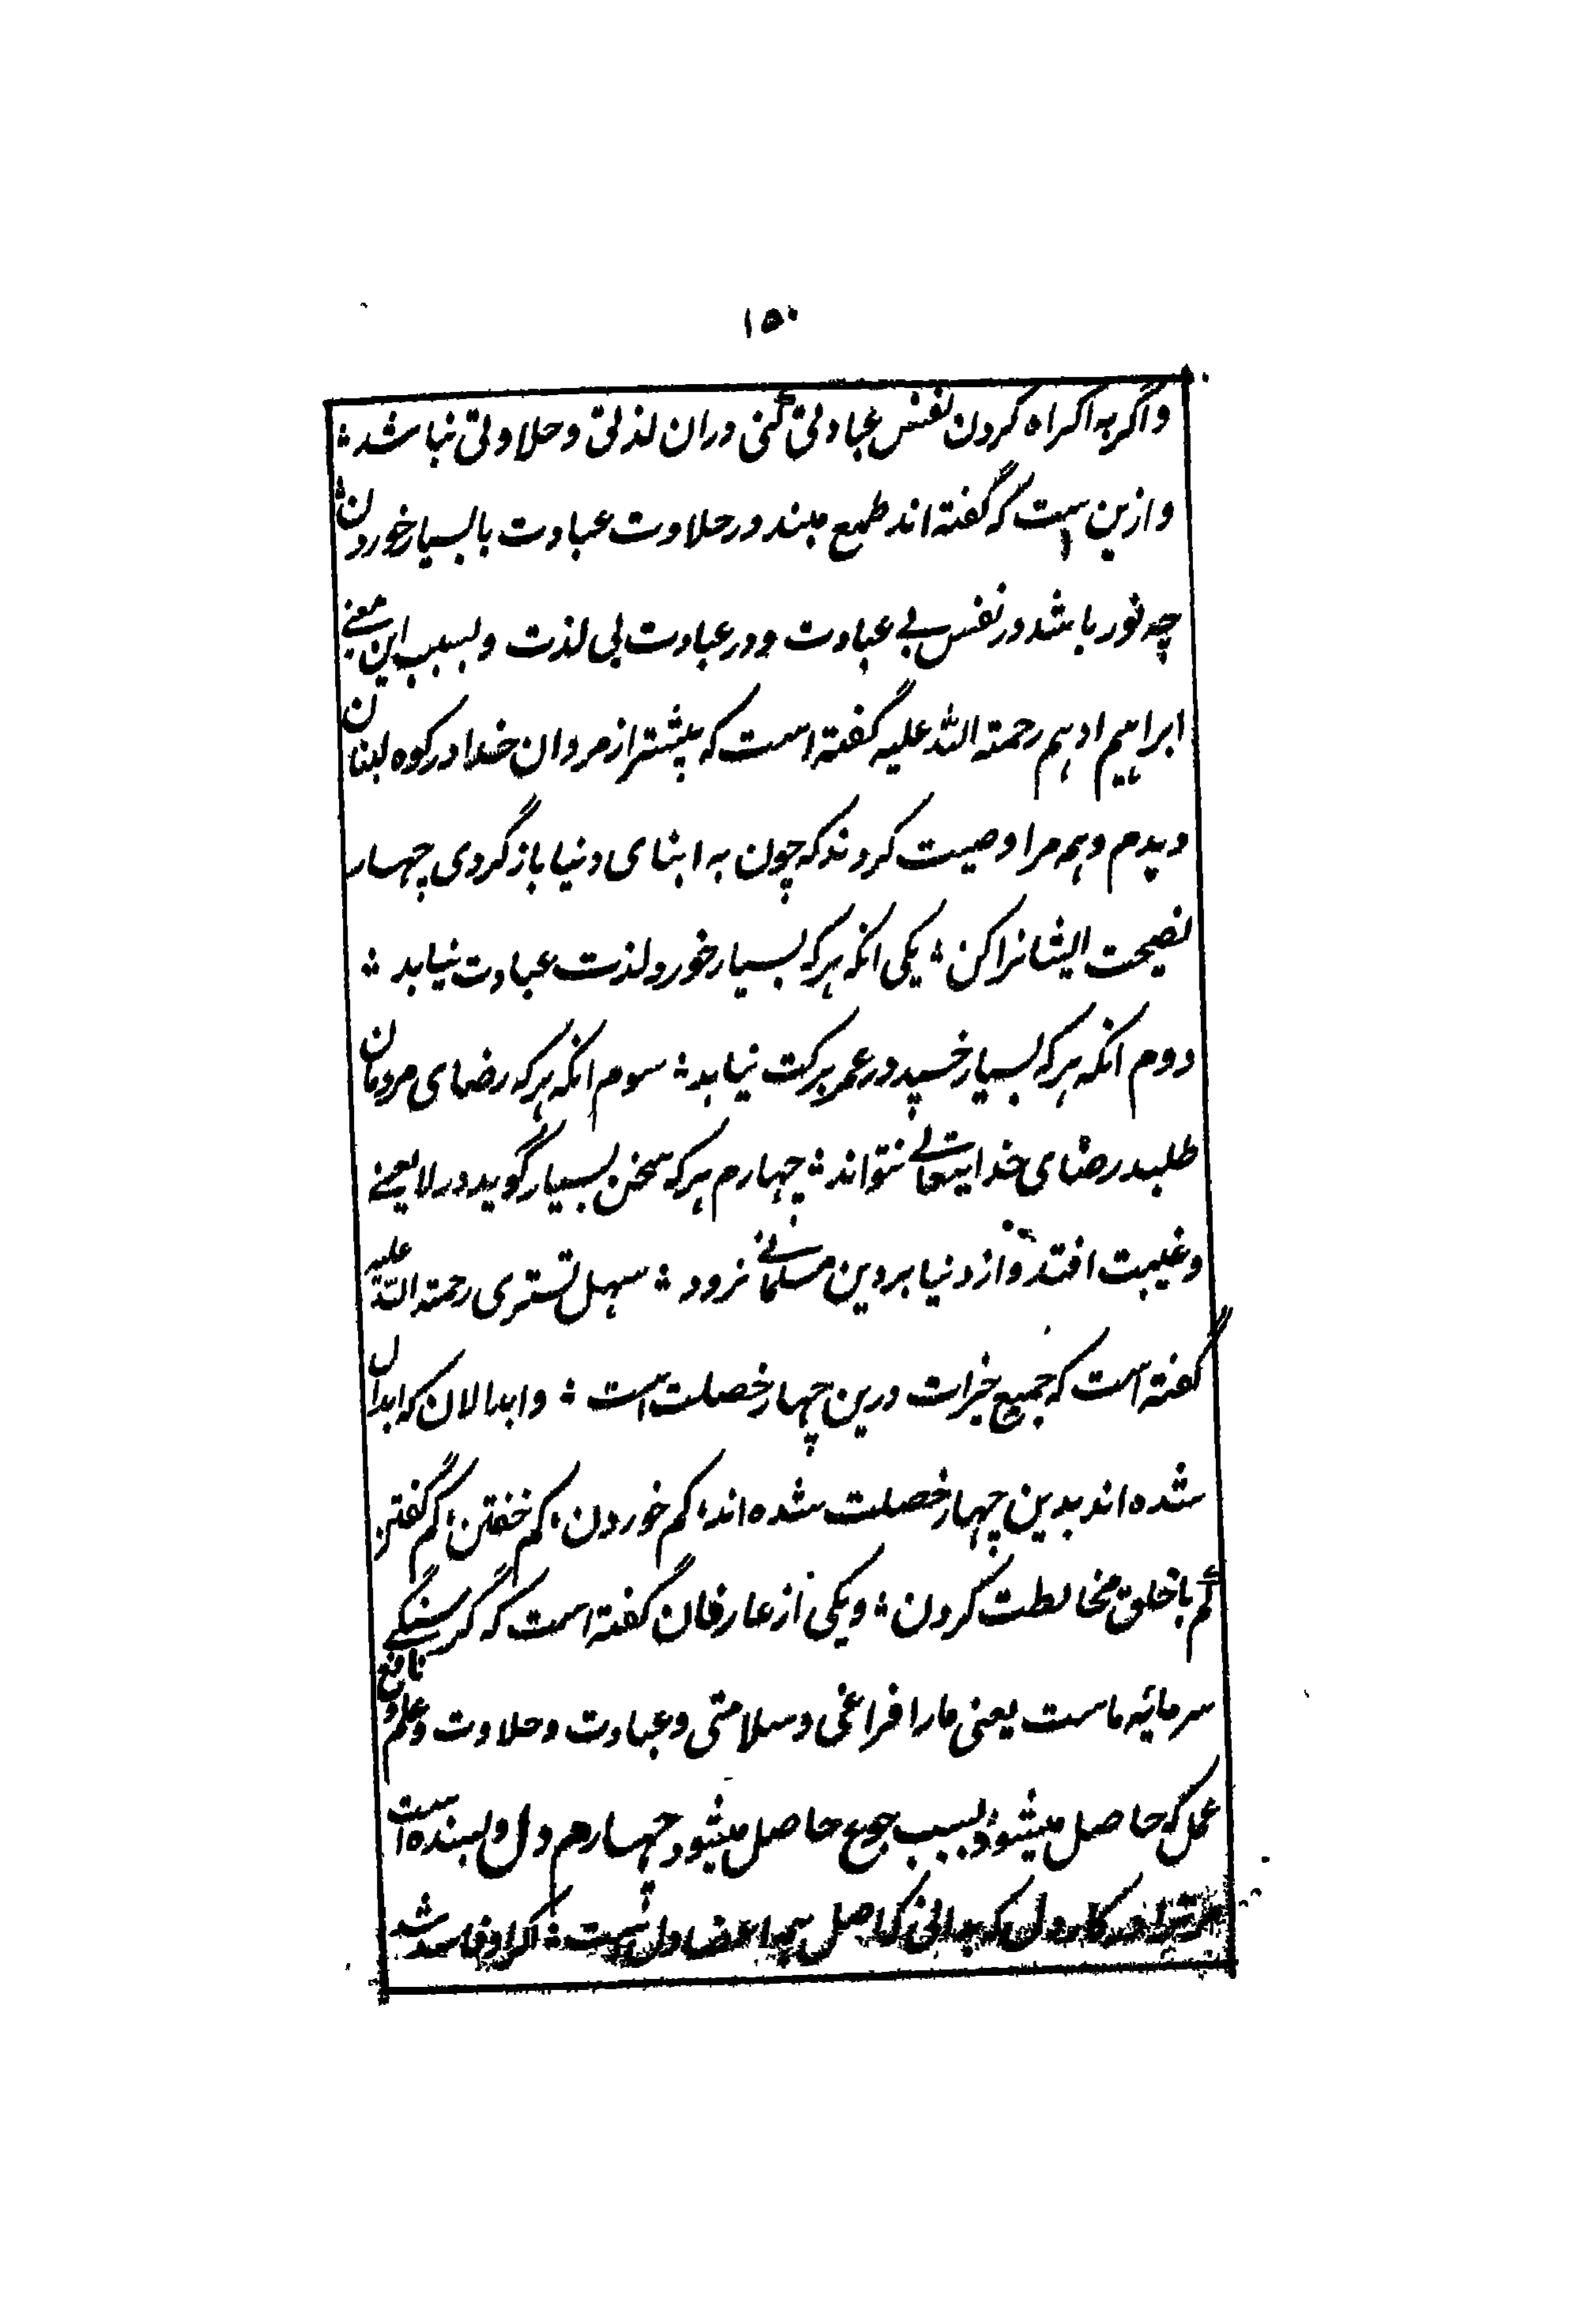 ۱۵۰
واگر به اکراه کردن نفس عبادتی کنی دران لذتی وحلاوتی نباشد ؛
وازین است که گفته اند طمع مبند در حلاوت عبادت با بسیار خوردن ؛
چه نور باشد در نفس بے عبادت و در عبادت بی لذت و بسبب این معنے
ابراهیم ادهم رحمته الله علیه گفته است که بیشتر از مردان خدا در کوه لبنان
دیدم و همه مرا وصیت کردند که چون به ابنای دنیا باز گردی چهار
نصیحت ایشانرا کن ؛ یکی انکه هر که بسیار خورد لذت عبادت نیابد ؛
دوم انکه هر که بسیار خسپد در عمر برکت نیابد ؛ سوم انکه هر که رضای مردمان
طلبد رضای خدایتعالے نتواند ؛ چهارم هر که سخن بسیار گوید در لایعنے
و غیبت افتد و از دنیا بر دین مسلمانے نرود ؛ سهل تستری رحمته الله علیه
گفته است که جمیع خیرات درین چهار خصلت است ؛ و ابدالان که ابدال
شده اند بدین چهار خصلت شده اند، کم خوردن، کم خفتن، کم گفتن
کم با خلق مخالطت کردن ؛ و یکی از عارفان گفته است که گرسنگے
سرمایه ماست یعنی مارا فراغی و سلامتی و عبادت و حلاوت و علم نافع و
عمل که حاصل میشود بسبب جوع حاصل میشود چهارم دل و بسنده است
ترا در کار دل که بدانی که اصل همه اعضا دل است ؛ اگر او فاسد شد